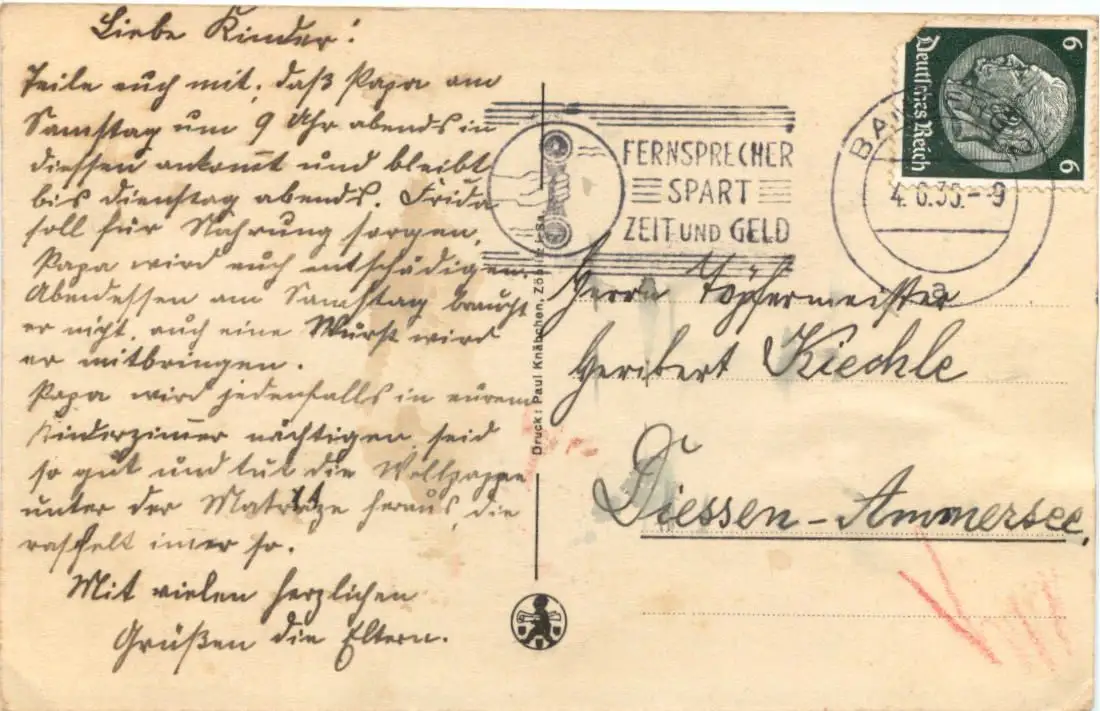 Liebe Kinder!
Teile euch mit, daß Papa am
Samstag um 9 Uhr abends in
diessen ankomt und bleibt
bis dienstag abends. Frida
soll für Nahrung sorgen,
Papa wird euch entschädigen.
Abendessen am Samstag braucht
er nicht, auch eine Wurst wird
er mitbringen.
Papa wird jedenfalls in eurem
Kinderzimer nächtigen, seid
so gut und tut die Wellpappe
unter der Matratze heraus, die
raschelt imer so.
Mit vielen herzlichen
Grüßen die Eltern.
Druck: Paul Knäbchen, Zöblitz i. Sa.
FERNSPRECHER
SPART
ZEIT UND GELD
BA
4.6.36.-9
a
Deutsches Reich
6
6
Herrn Töpfermeister
Heribert Kiechle
Diessen-Ammersee.